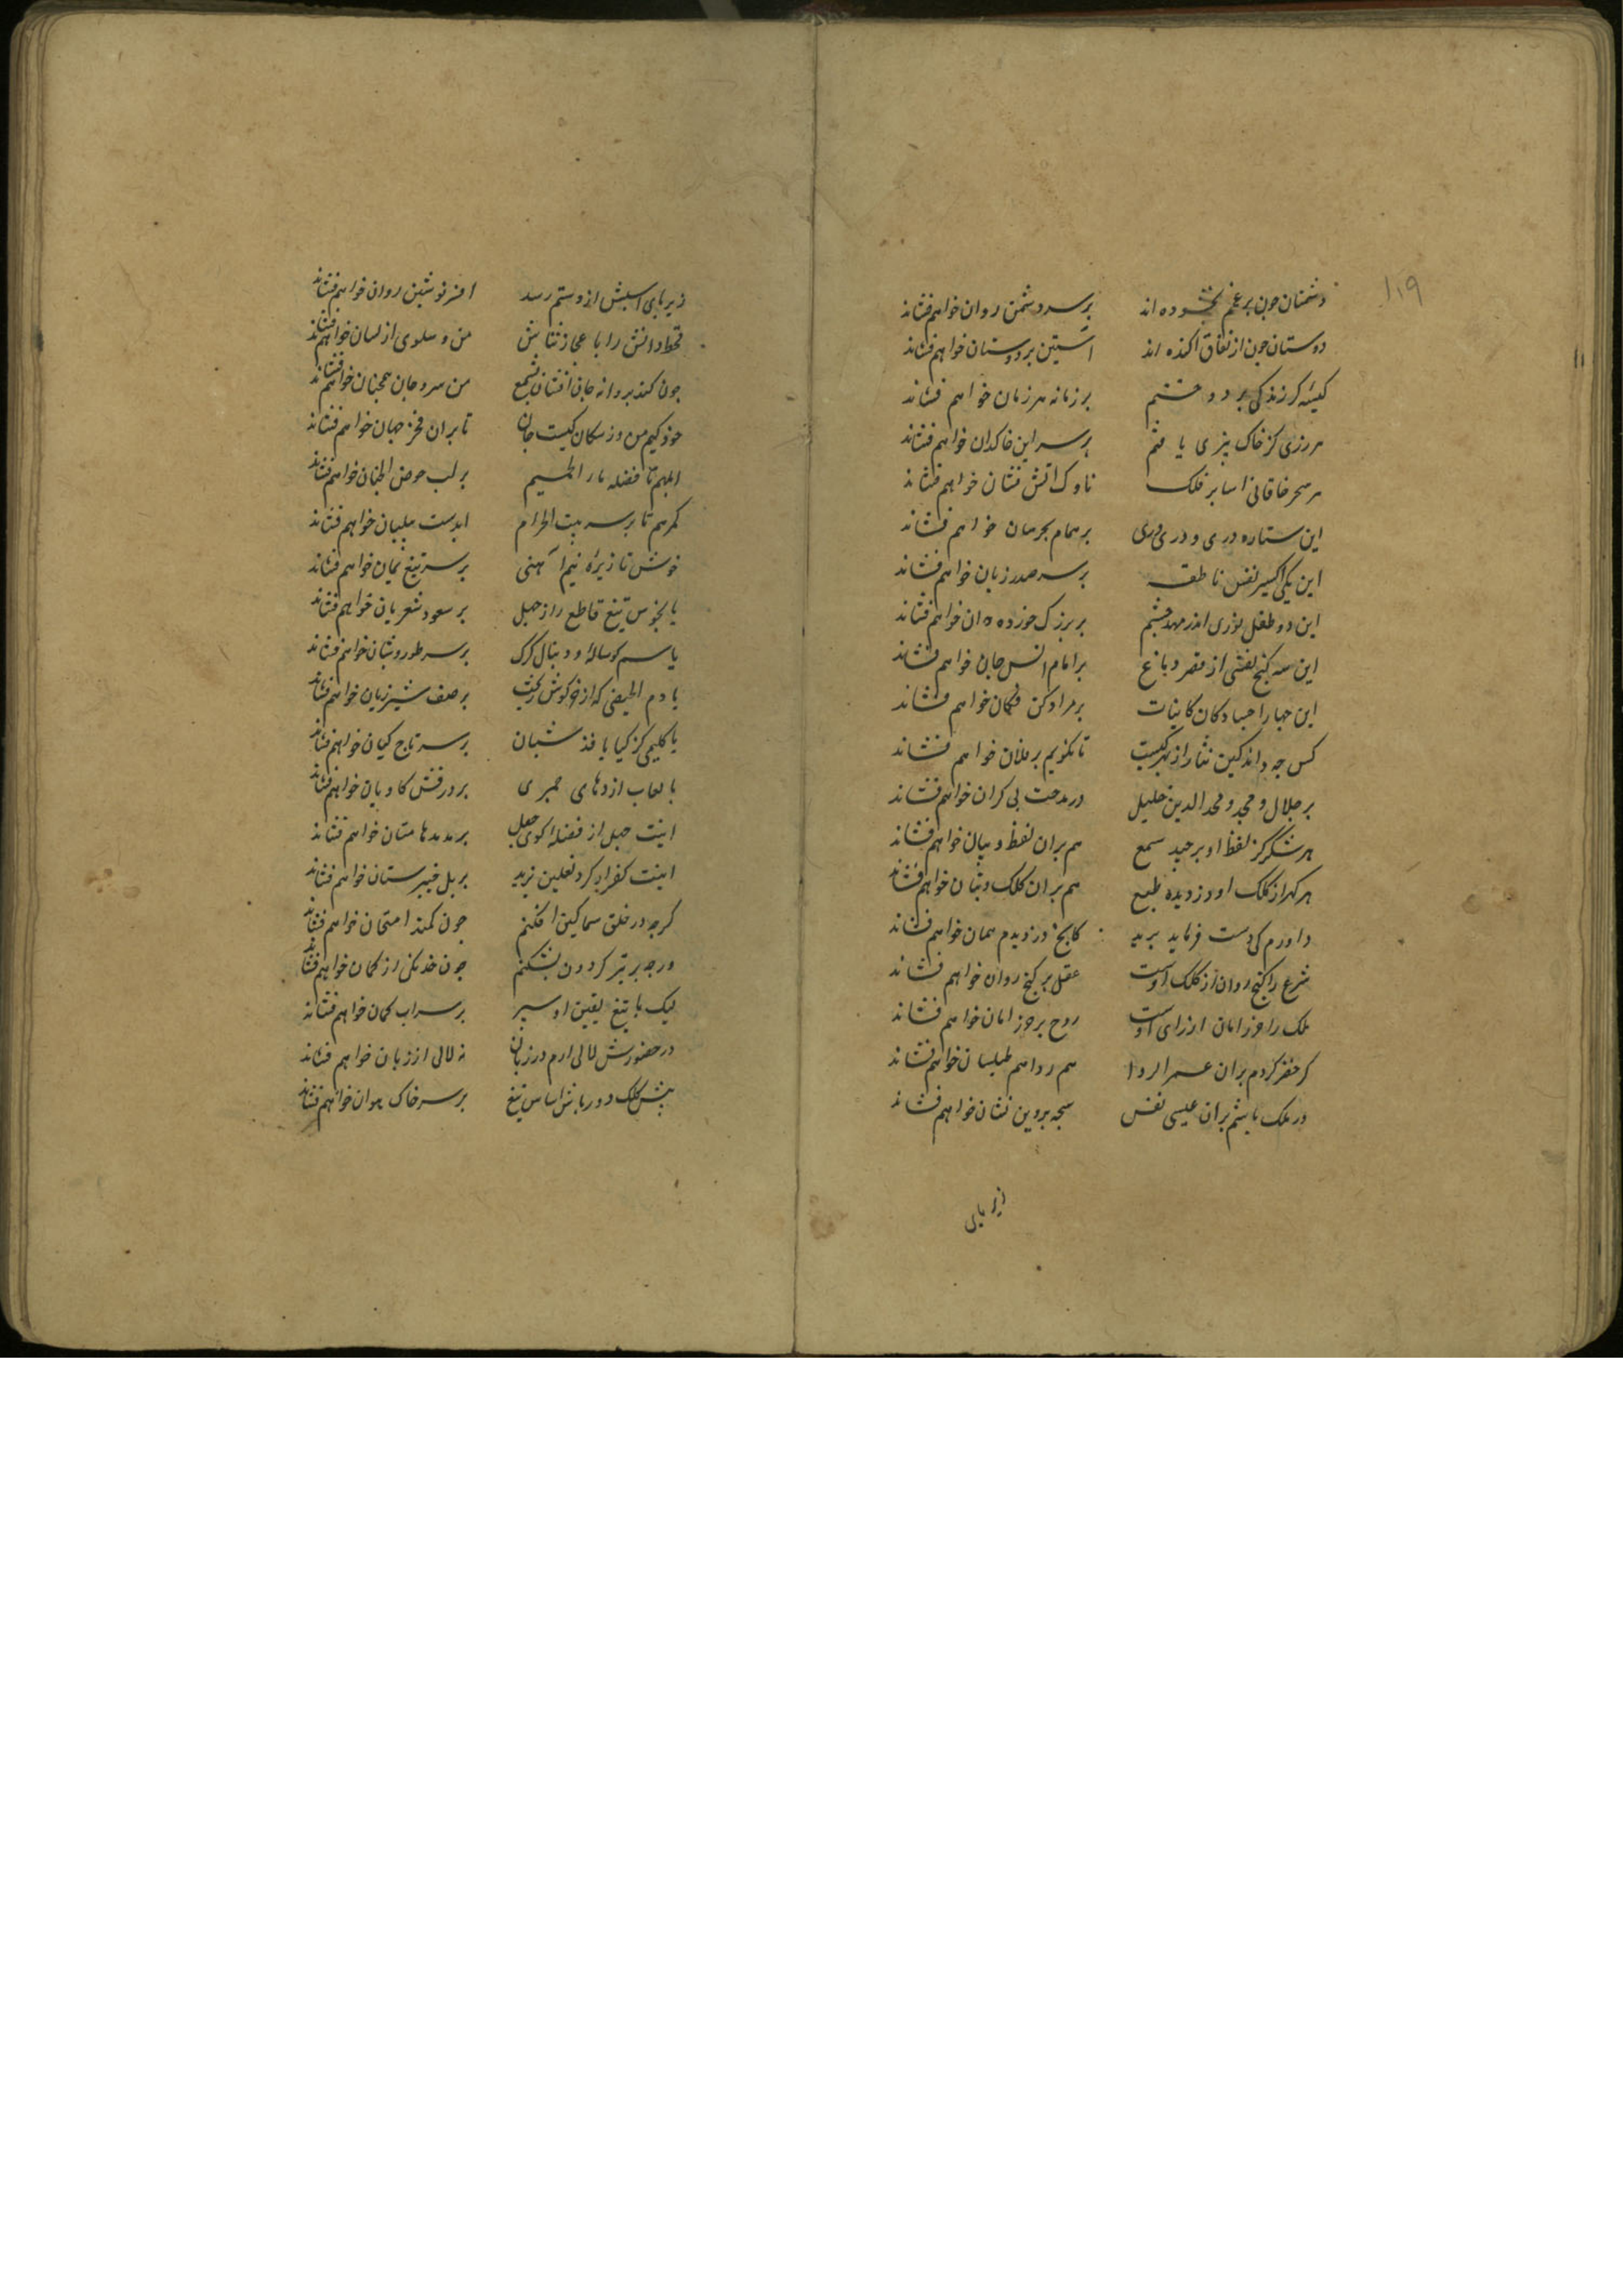 ۱۱۹
دشمنان چون بر غمم بخشوده اند بر سر دشمن روان خواهم فشاند
دوستان چون از نفاق آکنده اند آستین بر دوستان خواهم فشاند
کیسه کز زندگی بر دوختم بر زمانه هر زمان خواهم فشاند
هر زری کز خاک بیزی یافتم بر سر این خاکدان خواهم فشاند
هر سحر خاقانی آسا بر فلک ناوک آتش فشان خواهم فشاند
این ستاره دری و در دری بر همام بحرسان خواهم فشاند
این یکی اکسیر نفس ناطقه بر سر صدر زبان خواهم فشاند
این دو طفل نوری اندر مهد چشم بر بزرگ خورده دان خواهم فشاند
این سه گنج نفس از قصر دماغ بر امام انس جان خواهم فشاند
این چهار اجساد کان کاینات بر مراد کن فکان خواهم فشاند
کس چه داند کین نثار از بهر کیست تا نگویم بر فلان خواهم فشاند
بر جلال و مجد و مجد الدین خلیل در مدحت بی کران خواهم فشاند
هر شکر کز لفظ او برچید سمع هم بران لفظ و بیان خواهم فشاند
هر گهر از کلک او دزدیده طبع هم بران کلک و بنان خواهم فشاند
داورم کی دست فرماید برید کانچ دزدیدم همان خواهم فشاند
شرع را گنج روان از کلک اوست عقل بر گنج روان خواهم فشاند
ملک را حرز امان از رای اوست روح بر حرز امان خواهم فشاند
گر حضر کردم بران عمر الردا هم ردا هم طیلسان خواهم فشاند
ور ملک باشم بران عیسی نفس سبحه پروین نشان خواهم فشاند
زیر پای
زیر پای اسبش از دستم رسد افسر نوشین روان خواهم فشاند
قحط دانش را باعجاز ثناش من و سلوی از لسان خواهم فشاند
چون کند پروانه جان افشان بشمع من سر و جان همچنان خواهم فشاند
خود کیم من وز سکان کیست جان تا بران فخر جهان خواهم فشاند
ابلهم تا فضله نار الحمیم بر لب حوض الجنان خواهم فشاند
گمرهم تا بر سر بیت الحرام ابدست پیلبان خواهم فشاند
خوش تا زیره نیم آهنی بر سر تیغ یمان خواهم فشاند
یا نحوس تیغ قاطع را ز جهل بر سعود شعریان خواهم فشاند
یا سم گوساله و دنبال گرگ بر سر طور و شبان خواهم فشاند
یا دم الحیضی که از خرگوش ریخت بر صف شیر ژیان خواهم فشاند
یا گلیمی کز کیا یافد شبان بر سر تاج کیان خواهم فشاند
یا لعاب اژدهای حمیری بر درفش کاویان خواهم فشاند
اینت جهل از فضله کوی جعل بر مدمدهامتان خواهم فشاند
اینت کفر ار گرد نعلین یزید بر یل خیبر ستان خواهم فشاند
گرچه در حلق سماکین افکنم چون کمند امتحان خواهم فشاند
ورچه بر تیر گردون بشکنم چون خدنگی از کمان خواهم فشاند
لیک با تیغ یقین او سپر بر سراب گمان خواهم فشاند
در حضورش لالی ارم در زبان نه لالی از زبان خواهم فشاند
پیش کلک دور باش آساش تیغ بر سر خاک هوان خواهم فشاند